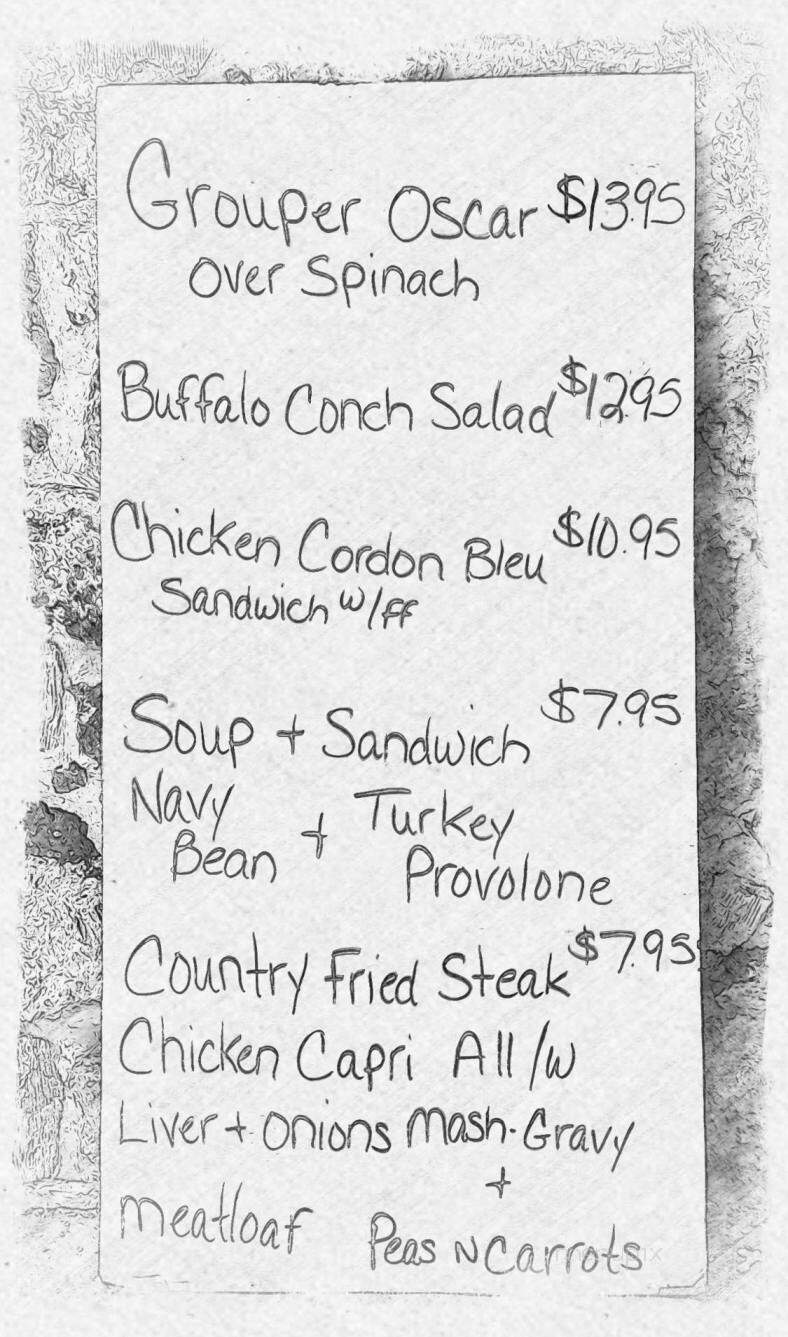 Grouper Oscar $13.95
over Spinach
Buffalo Conch Salad $12.95
Chicken Cordon Bleu $10.95
Sandwich w/ff
Soup + Sandwich $7.95
Navy Bean + Turkey Provolone
Country Fried Steak $7.95
Chicken Capri All /w
Liver + onions Mash. Gravy
+
Meatloaf Peas N Carrots